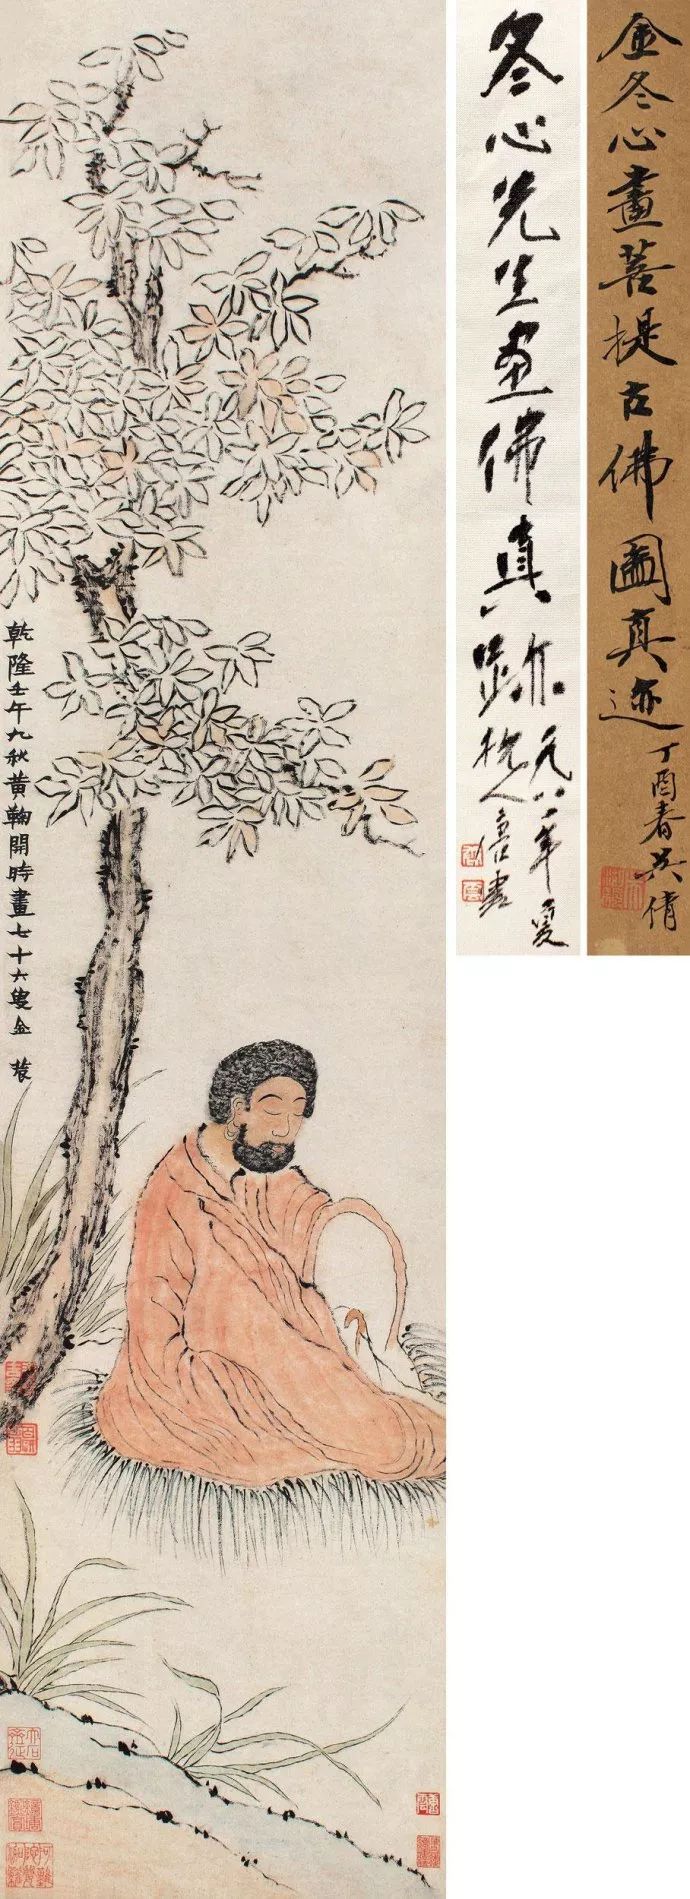 金冬心畫菩提古佛圖真迹
丁酉春吳倩
冬心先生画佛真跡
元八一年夏
乾隆壬午九秋黄鞠開時畫七十六叟金農